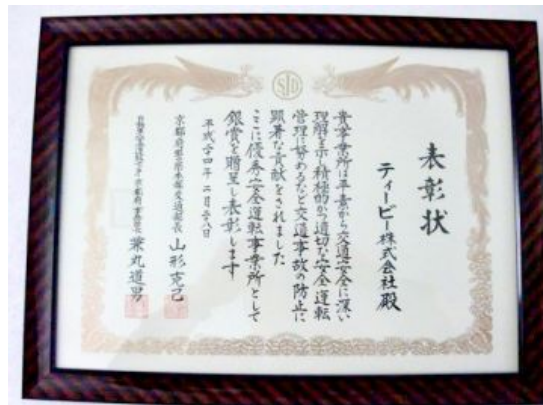 表彰状
ティービー株式会社殿
貴事業所は平素から交通安全に深い
理解を示し積極的かつ適切な安全運転
管理に努めるなど交通事故の防止に
顕著な貢献をされました
ここに優秀安全運転事業所として
銀賞を贈呈し表彰します
平成廿四年二月廿八日
京都府警察本部交通部長 山形克己
自動車安全運転センター京都府事務所長 兼丸道男